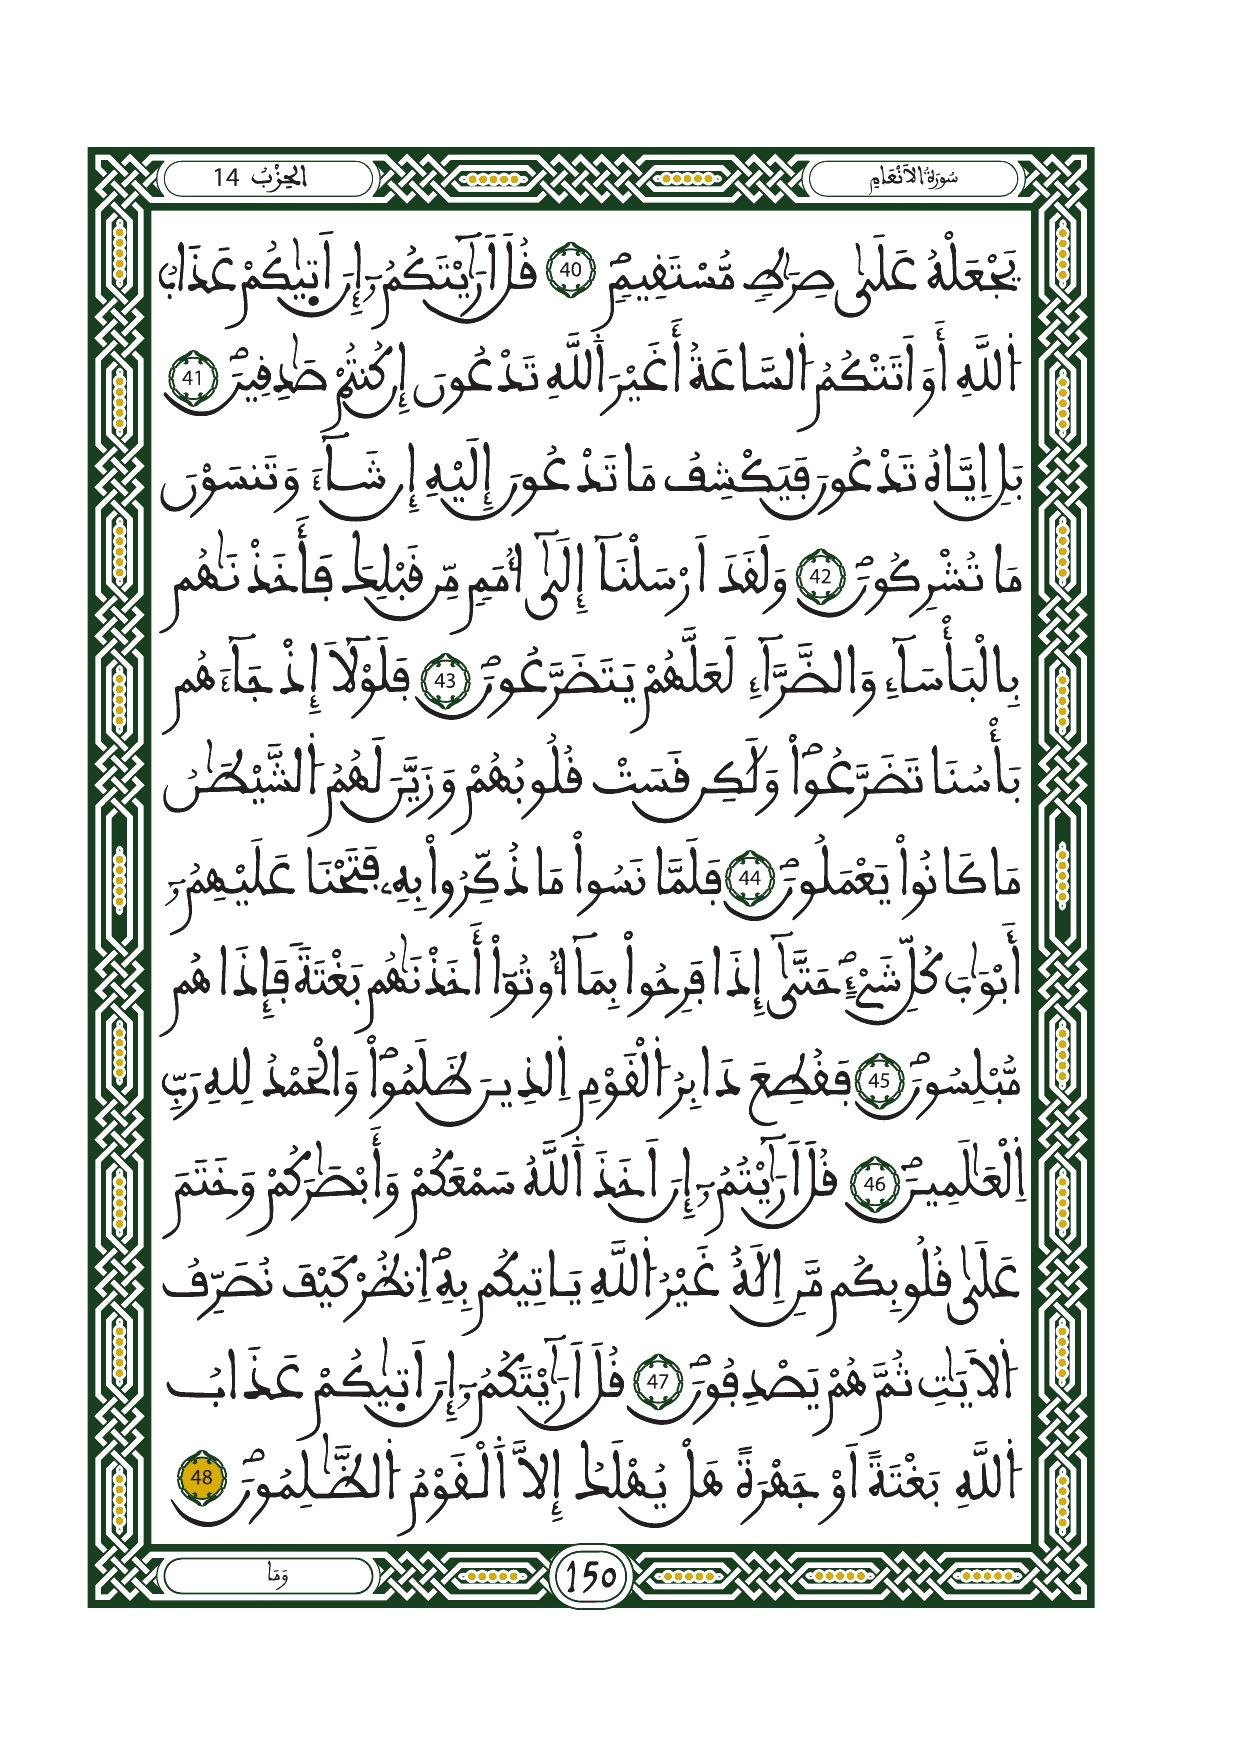 سُورَةُ الْأَنْعَامِ
الْحِزْبُ 14
يَجْعَلْهُ عَلَىٰ صِرَٰطٖ مُّسْتَقِيمٖۖ 40 قُلَ اَرَٰٓيْتَكُمُۥٓ إِنَ اَت۪يٰكُمْ عَذَابُ
اُ۬للَّهِ أَوَ اَتَتْكُمُ اُ۬لسَّاعَةُ أَغَيْرَ اَ۬للَّهِ تَدْعُونَ إِن كُنتُمْ صَٰدِقِينَۖ 41
بَلِ اِيَّاهُ تَدْعُونَ فَيَكْشِفُ مَا تَدْعُونَ إِلَيْهِ إِن شَآءَ وَتَنسَوْنَ
مَا تُشْرِكُونَۖ 42 وَلَقَدَ اَرْسَلْنَآ إِلَىٰٓ أُمَمٖ مِّن قَبْلِكَ فَأَخَذْنَٰهُم
بِالْبَأْسَآءِ وَالضَّرَّآءِ لَعَلَّهُمْ يَتَضَرَّعُونَۖ 43 فَلَوْلَآ إِذْ جَآءَهُم
بَأْسُنَا تَضَرَّعُواْۖ وَلَٰكِن قَسَتْ قُلُوبُهُمْ وَزَيَّنَ لَهُمُ اُ۬لشَّيْطَٰنُ
مَا كَانُواْ يَعْمَلُونَۖ 44 فَلَمَّا نَسُواْ مَا ذُكِّرُواْ بِهِۦ فَتَحْنَا عَلَيْهِمُۥٓ
أَبْوَٰبَ كُلِّ شَےْءٍۖ حَتَّىٰٓ إِذَا فَرِحُواْ بِمَآ أُوتُوٓاْ أَخَذْنَٰهُم بَغْتَةٗ فَإِذَا هُم
مُّبْلِسُونَۖ 45 فَقُطِعَ دَابِرُ اُ۬لْقَوْمِ اِ۬لذِينَ ظَلَمُواْۖ وَالْحَمْدُ لِلهِ رَبِّ
اِ۬لْعَٰلَمِينَۖ 46 قُلَ اَرَٰٓيْتُمُۥٓ إِنَ اَخَذَ اَ۬للَّهُ سَمْعَكُمْ وَأَبْصَٰرَكُمْ وَخَتَمَ
عَلَىٰ قُلُوبِكُم مَّنِ اِلَٰهٌ غَيْرُ اُ۬للَّهِ يَاتِيكُم بِهِۖ اِ۟نظُرْ كَيْفَ نُصَرِّفُ
اُ۬لَايَٰتِ ثُمَّ هُمْ يَصْدِفُونَۖ 47 قُلَ اَرَٰٓيْتَكُمُۥٓ إِنَ اَت۪يٰكُمْ عَذَابُ
اُ۬للَّهِ بَغْتَةً اَوْ جَهْرَةً هَلْ يُهْلَكُ إِلَّا اَ۬لْقَوْمُ اُ۬لظَّٰلِمُونَۖ 48
وَمَا
150